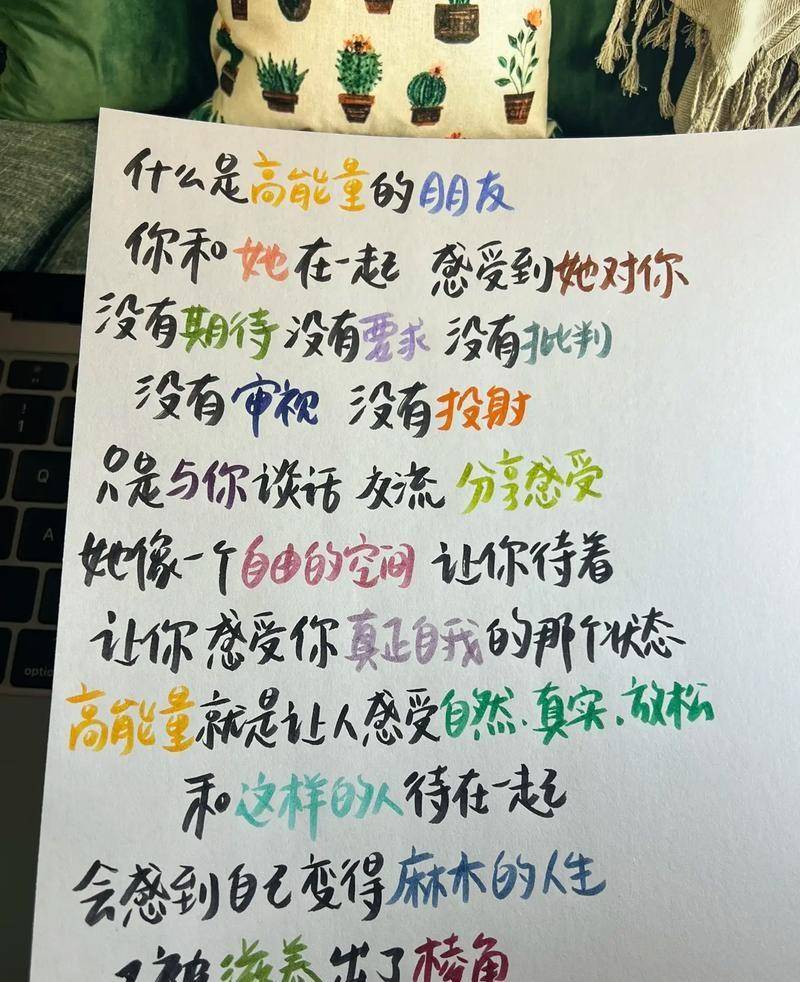 什么是高能量的朋友
你和她在一起 感受到她对你
没有期待 没有要求 没有批判
没有审视 没有投射
只是与你谈话 交流 分享感受
她像一个自由的空间 让你待着
让你感受你真正自我的那个状态
高能量就是让人感受自然、真实、放松
和这样的人待在一起
会感到自己变得麻木的人生
又被滋养出了棱角
1
Q
A
option